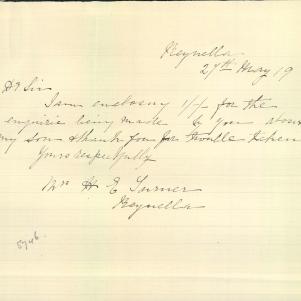 Reynella
27th May 19
Dr Sir
I am enclosing 1/- for the
enquirie being made by you about
my son & thank you for troulle taken
Yours respectfully
Mrs H E Turner
Reynella
5746.